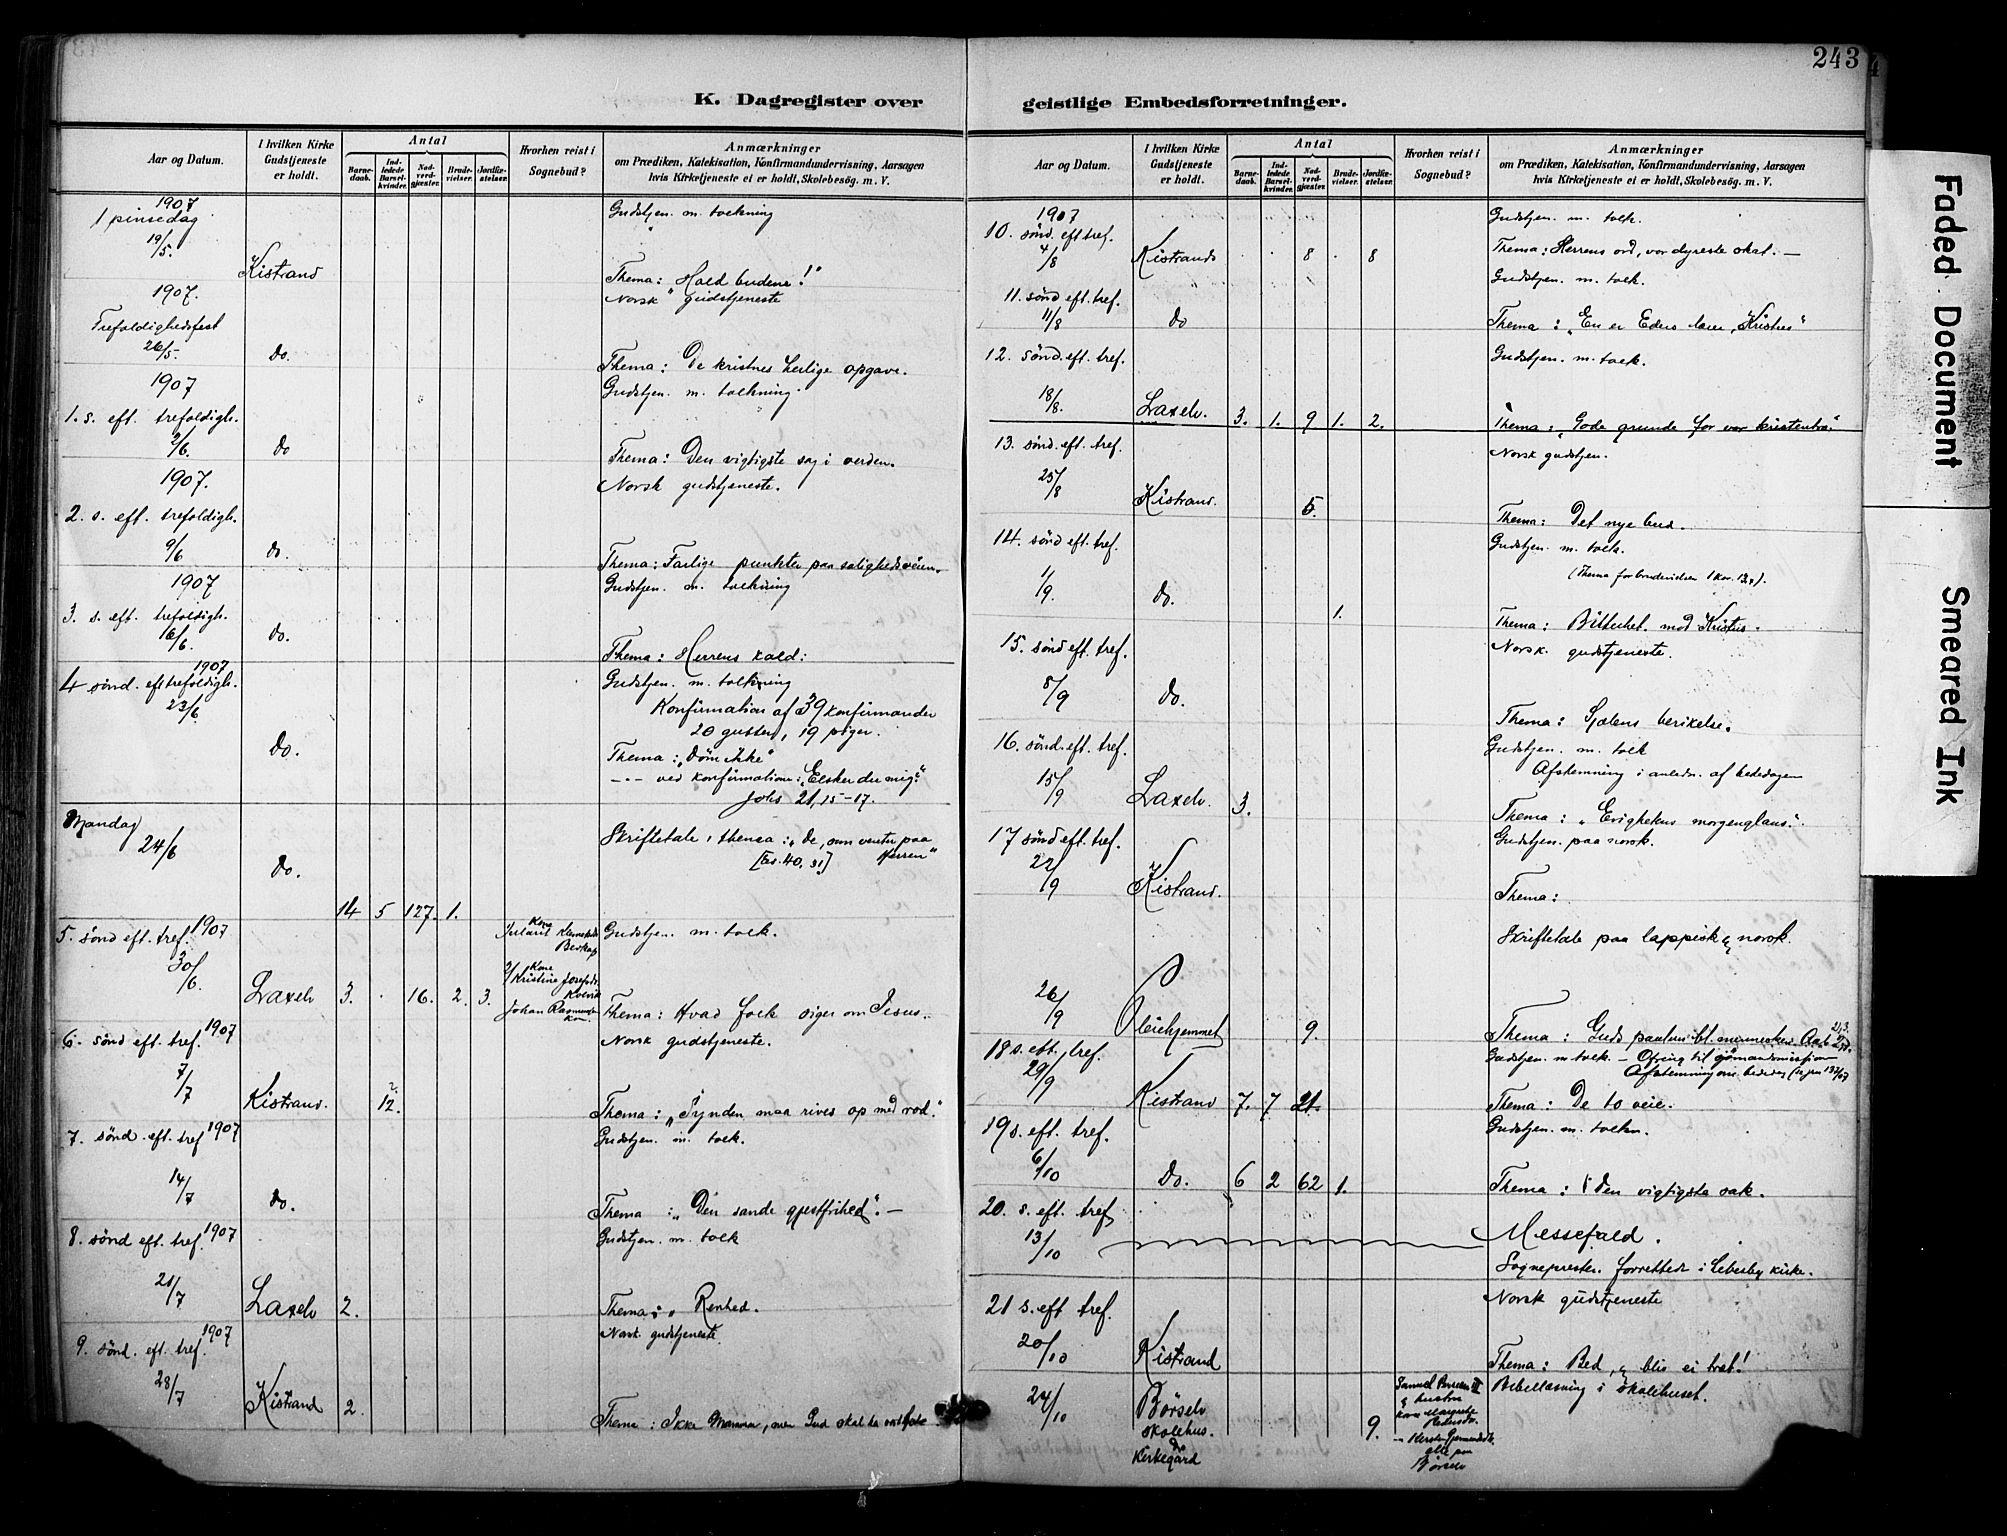 243
K. Dagregister over
geistlige Embedsforretninger.
Aar og Datum.
I hvilken Kirke Gudstjeneste er holdt.
Antal
Barnedaab.
Indledede Barselkvinder.
Nadverdgjæster.
Brudevielser.
Jordfæstelser.
Hvorhen reist i Sognebud?
Anmærkninger
om Prædiken, Katekisation, Konfirmandundervisning, Aarsagen
hvis Kirketjeneste ei er holdt, Skolebesög. m. V.
1907
1 pinsedag
19/5.
Kistrand
Gudstjen. m. tolkning
Thema: Hold budene!"
1907.
Trefoldighedsfest
26/5.
do.
Norsk gudstjeneste
Thema: De kristnes herlige opgave.
1907
1. s. eft. trefoldigh.
2/6.
do
Gudstjen. m. tolkning.
Thema: Den vigtigste sag i verden.
1907.
2. s. eft. trefoldigh.
9/6
do.
Norsk gudstjeneste.
Thema: Farlige punkter paa salighedsveien.
1907
3. s. eft. trefoldigh.
16/6.
do.
Gudstjen. m. tolkning
Thema: Herrens kald:
1907
4 sønd. eft trefoldigh.
23/6.
do.
Gudstjen. m. tolkning
Konfirmation af 39 konfirmander
20 gutter, 19 piger.
Thema: "Døm ikke"
-"- ved konfirmation: "Elsker du mig?"
Johs 21, 15-17.
Mandag
24/6
do.
14 5 127. 1.
Skriftetale, thema: "De, som venter paa
[Es. 40, 31] Herren"
5. sønd eft. tref. 1907
30/6.
Laxelv 3. . 16. 2. 3.
Kone
Kone
Kristine Josefsdr.
Kolvik
Johan Rasmussen
Gudstjen. m. tolk.
Thema: Hvad folk siger om Jesus.
6. sønd eft. tref. 1907
7/7
Kistrand. 12.
Norsk gudstjeneste.
Thema: "Synden maa rives op med rod."
7. sønd. eft. tref 1907
14/7
do.
Gudstjen. m. tolk.
Thema: "Den sande gjestfrihed". —
8. sønd eft. tref. 1907
21/7
Laxelv 2.
Gudstjen. m. tolk
Thema: Renhed.
9. sønd. eft. tref. 1907
28/7
Kistrand 2.
Norsk gudstjeneste.
Thema: Ikke Mamon, men Gud skal ha
Aar og Datum.
I hvilken Kirke Gudstjeneste er holdt.
Antal
Barnedaab.
Indledede Barselkvinder.
Nadverdgjæster.
Brudevielser.
Jordfæstelser.
Hvorhen reist i Sognebud?
Anmærkninger
om Prædiken, Katekisation, Konfirmandundervisning, Aarsagen
hvis Kirketjeneste ei er holdt, Skolebesög. m. V.
1907
10. sønd. eft tref.
4/8
Kistrand . . 8 . 8
Gudstjen. m. tolk.
Thema: Herrens ord, vor dyreste skat. —
11. sønd eft. tref.
11/8
do
Gudstjen. m. tolk.
Thema: "En er Eders lærer, Kristus"
12. sønd. eft. tref.
18/8.
Laxelv. 3. 1. 9 1. 2.
Gudstjen. m. tolk.
Thema: "Gode grunde for vor kristentro."
13. sønd. eft. tref.
25/8
Kistrand. 5.
Norsk gudstjen.
Thema: Det nye bud.
14. sønd eft. tref.
1/9.
do. 1.
Gudstjen. m. tolk.
(Thema for brudevielsen 1 Kor. 13,7).
Thema: Bitterhet mod Kristus.
15. sønd eft. tref.
8/9
do.
Norsk. gudstjeneste.
Thema: Sjælens berikelse.
16. sønd. eft. tref.
15/9
Laxelv. 3.
Gudstjen. m. tolk
Afstemning i anledn. af bededagen
Thema: "Evighetens morgenglans".
17 sønd eft. tref.
22/9
Kistrand.
Gudstjen. paa norsk.
Thema:
26/9
Pleiehjemmet 9.
Skriftetale paa lappisk & norsk.
Thema: Guds paalun bl. mennesker. Aab 21,3.
18 s. eft. tref.
29/9
Kistrand 7. 7 21.
Gudstjen. m tolk. — Ofring til sømandsmission
Afstemning om bededag
Thema: De to veie.
19 s. eft. tref.
6/10
do. 6 2 62 1.
Gudstjen. m. tolkn.
Thema: Den vigtigste sak.
20. s. eft. tref
13/10
Messefald.
Sognepresten forrettede i Lebesby kirke.
21 s. eft tref.
20/10
Kistrand
Norsk gudstjeneste
Thema: Bed, & bliv ei træt!
24/10
Børselv
skolehus.
do
Kirkegård
9.
Samuel Persen
& hustru
kone Margrete
Pedersdr.
alle paa
Børselv
Bibellæsning i skolehuset.
Faded Document
Smeared Ink